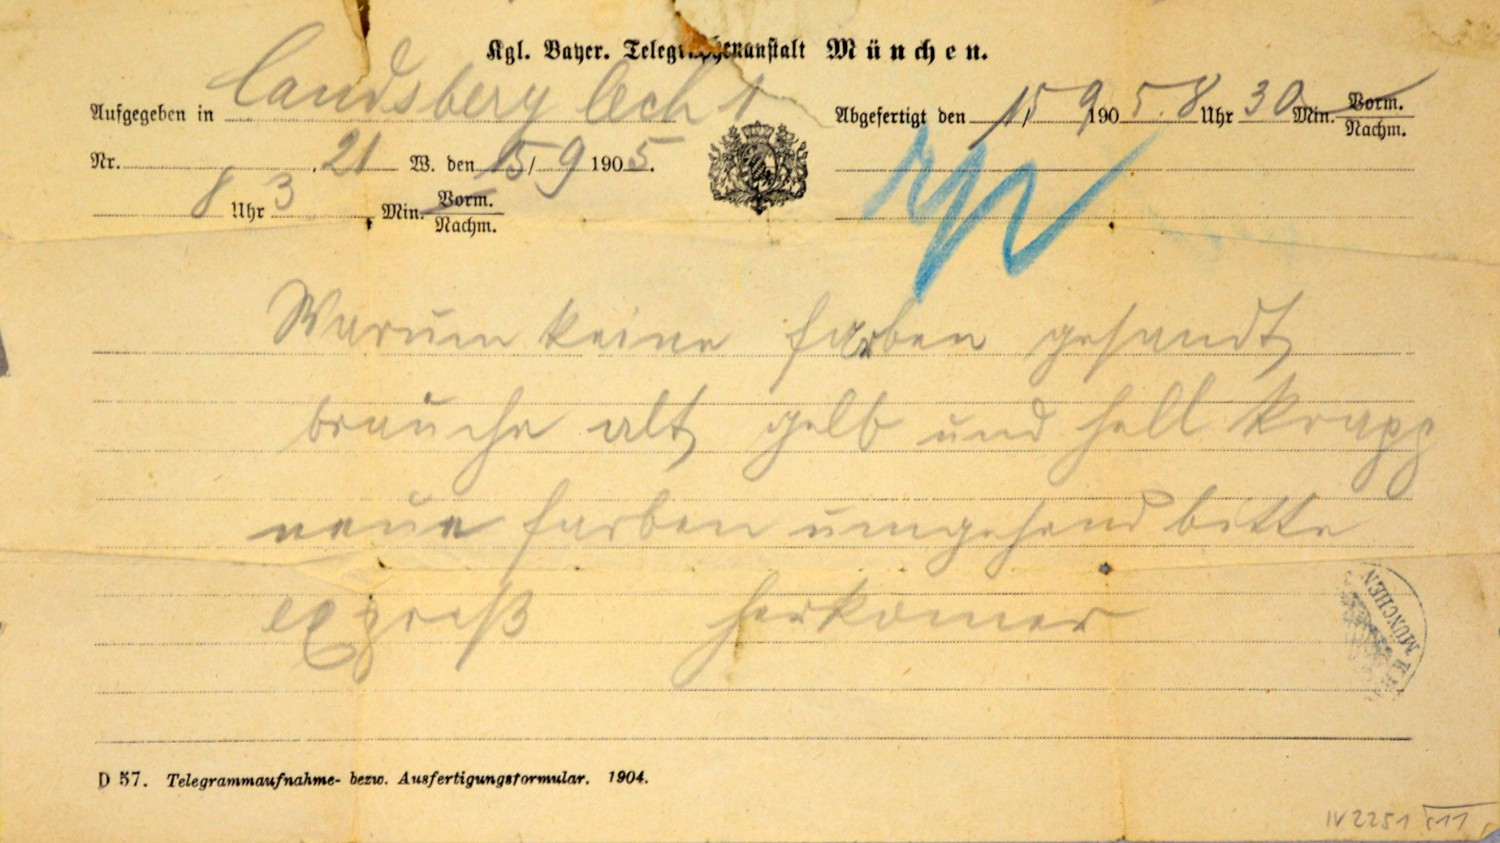 Kgl. Bayer. Telegraphenanstalt München.
Aufgegeben in Landsberg lech 1
Abgefertigt den 15/9 1905. 8 Uhr 30 Min. Vorm. Nachm.
Nr. , 21 W. den 15/9 1905.
8 Uhr 3 Min. Vorm. Nachm.
Warum keine farben gesandt
brauche alt gelb und hell krapp
neue farben umgehend bitte
expreß herkomer
MÜNCHEN
D 57. Telegrammaufnahme- bezw. Ausfertigungsformular. 1904.
IV 2251